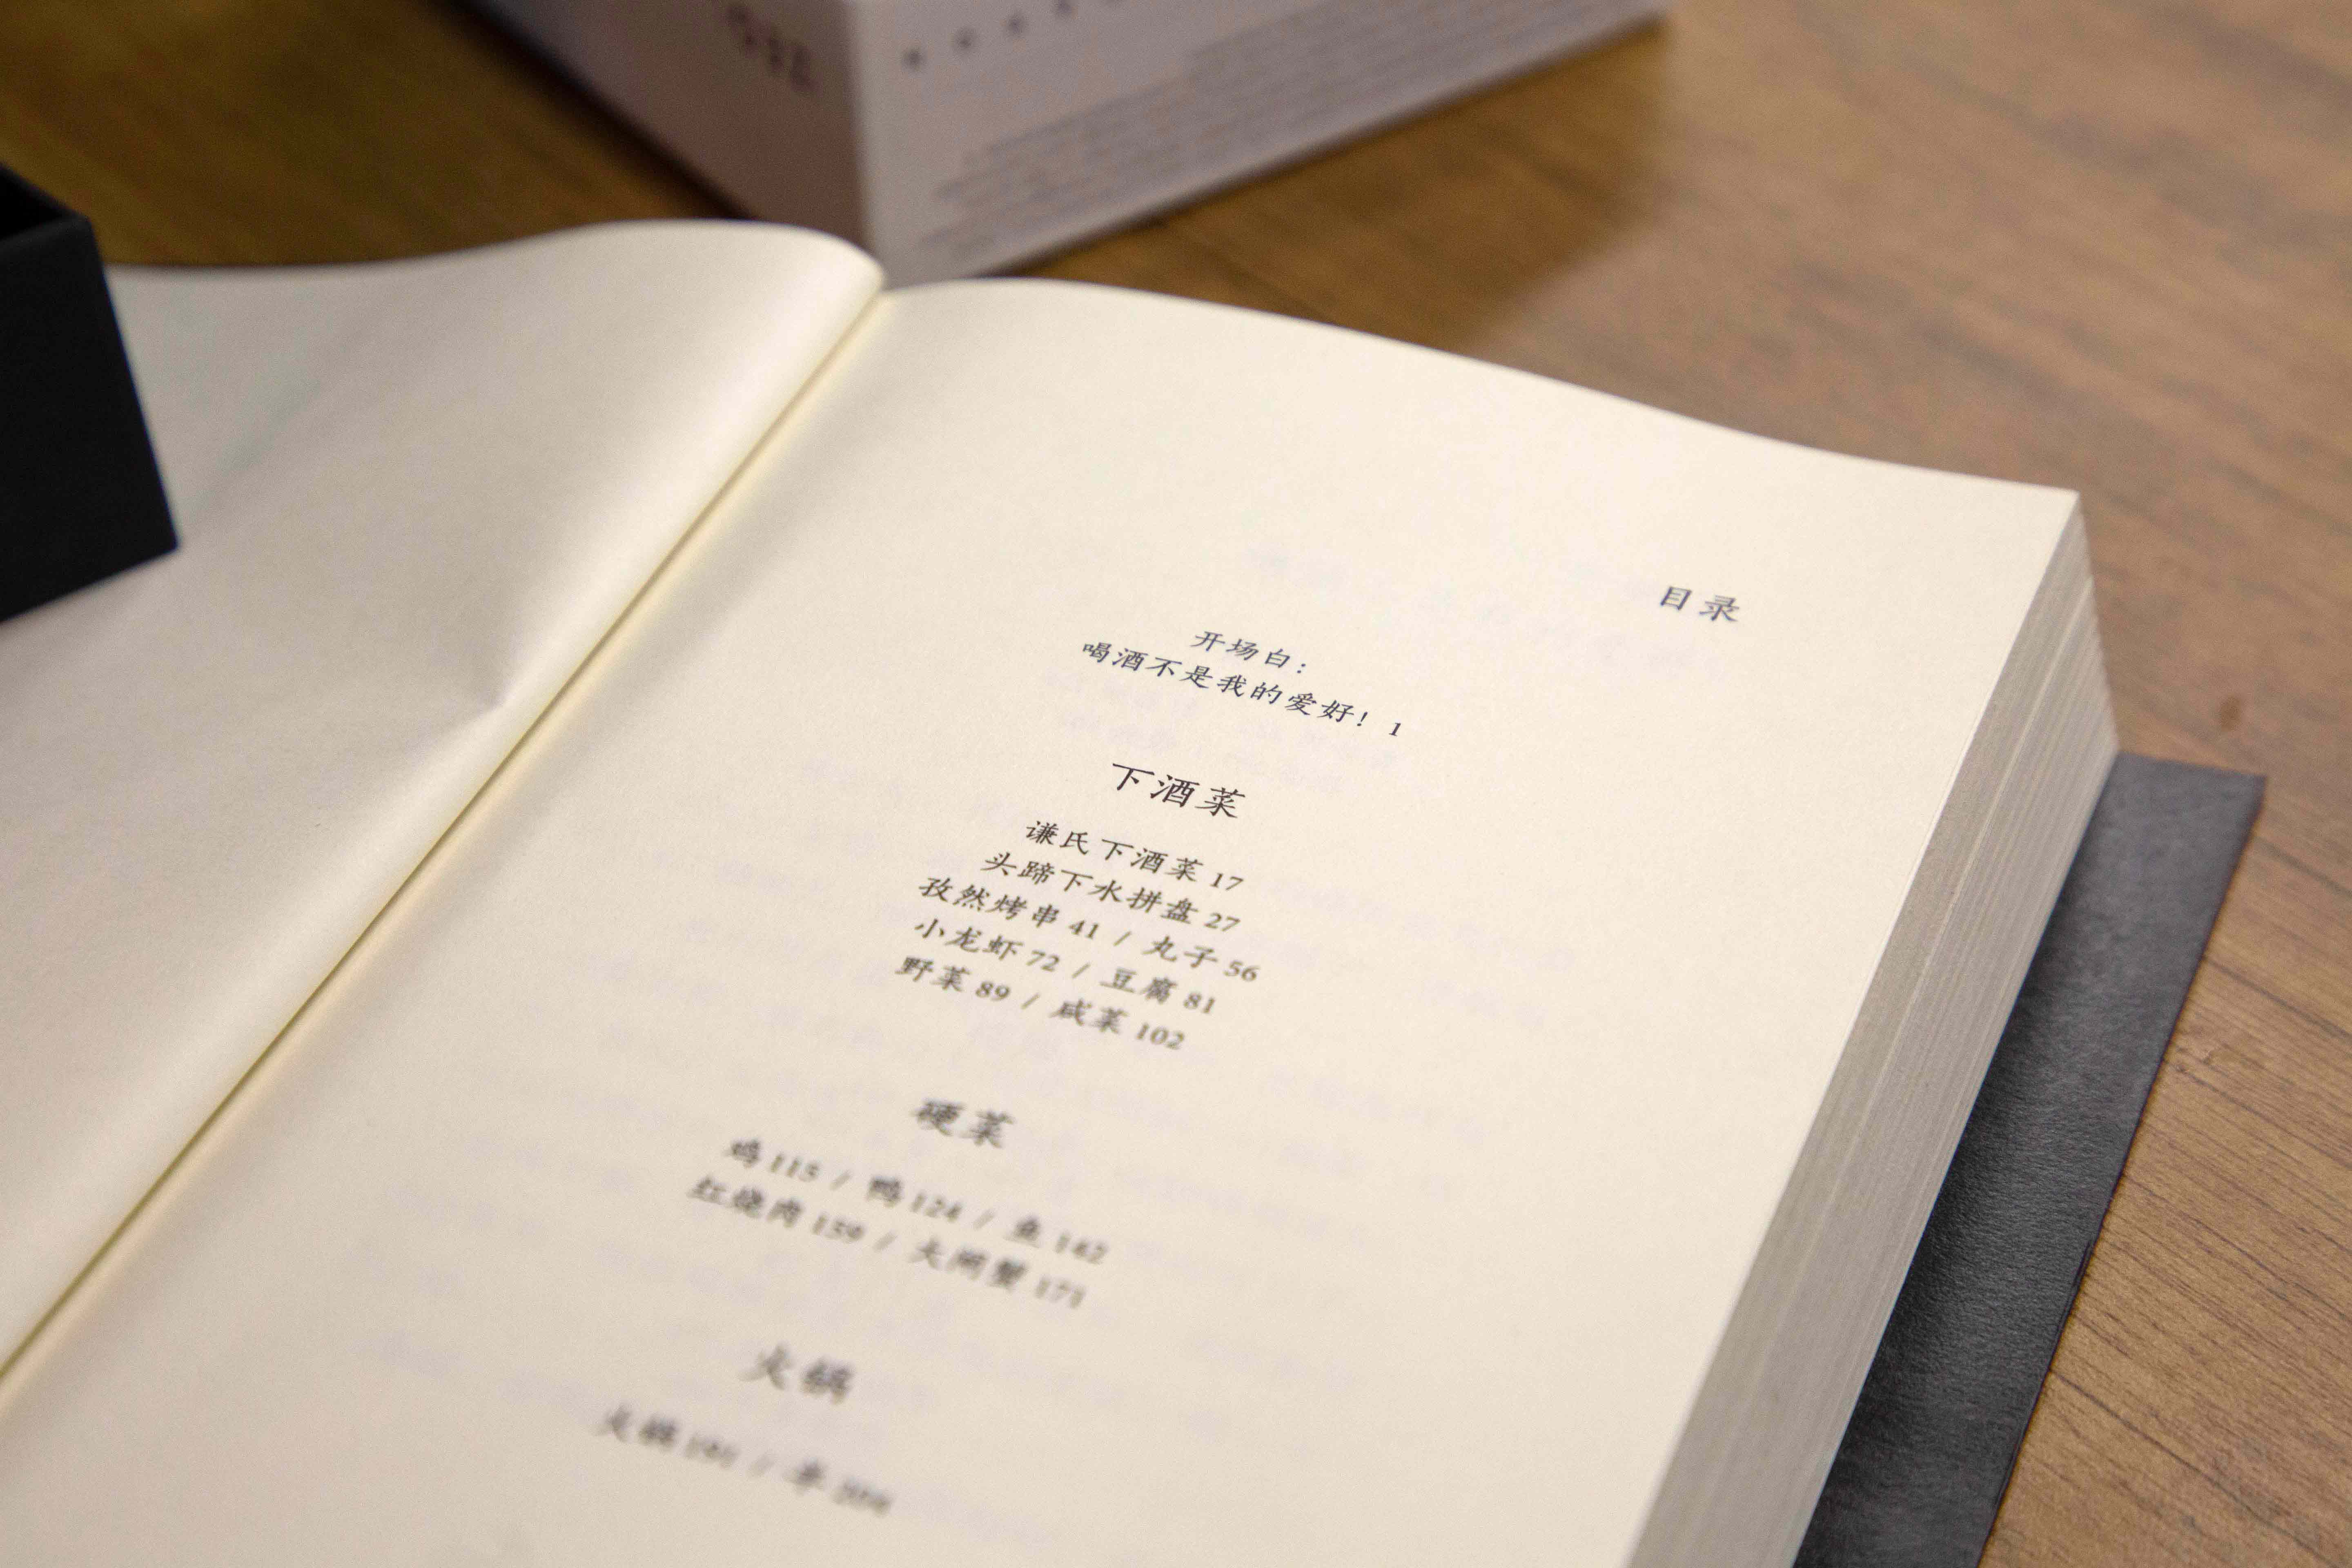 目录
开场白：
喝酒不是我的爱好！ 1
下酒菜
谦氏下酒菜 17
头蹄下水拼盘 27
孜然烤串 41 / 丸子 56
小龙虾 72 / 豆腐 81
野菜 89 / 咸菜 102
硬菜
鸡 115 / 鸭 124 / 鱼 142
红烧肉 159 / 大闸蟹 171
火锅
火锅 / 羊